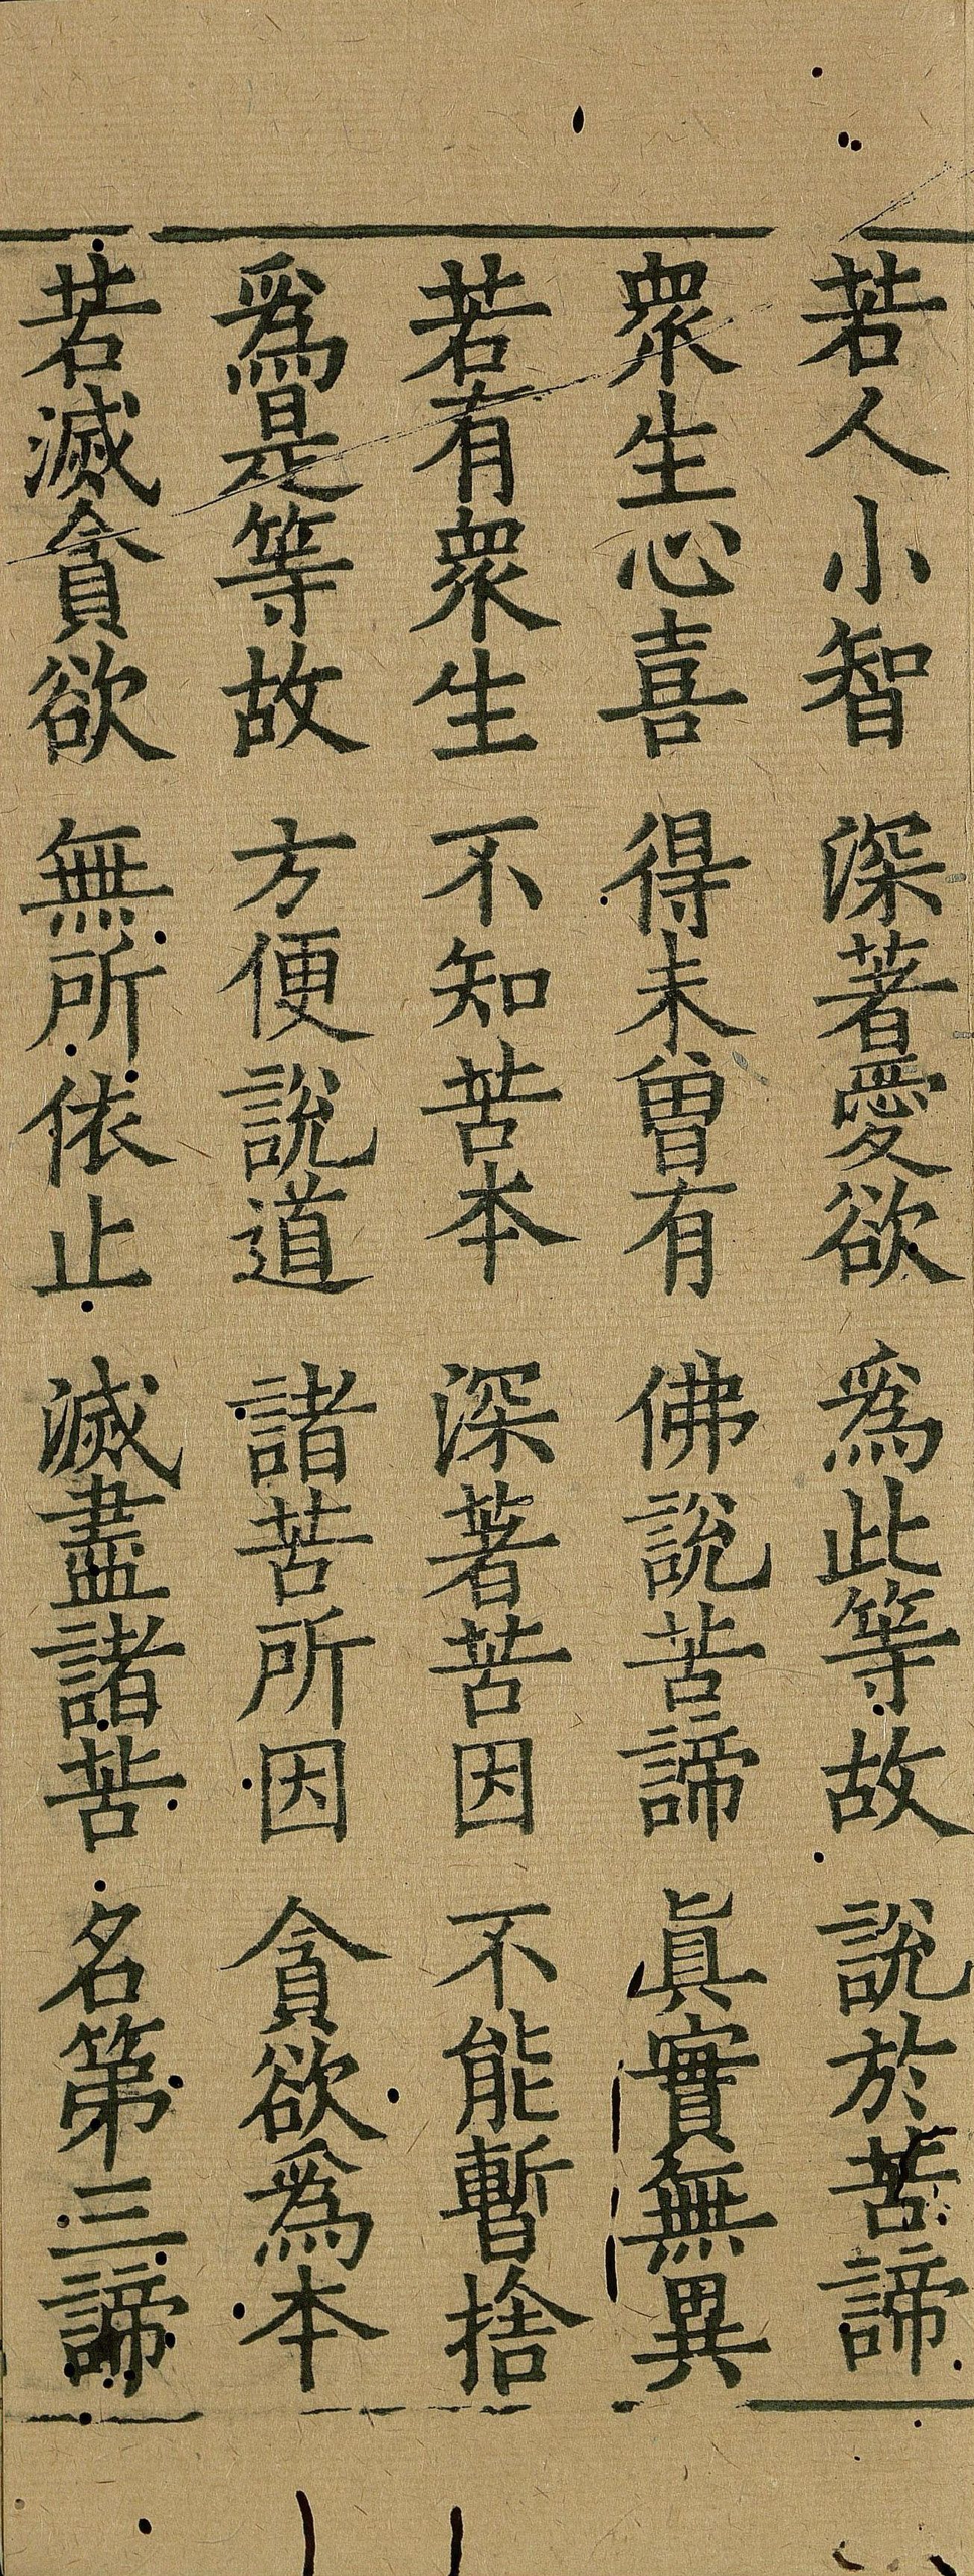 若人小智　深著愛欲　爲此等故　說於苦諦
衆生心喜　得未曾有　佛說苦諦　眞實無異
若有衆生　不知苦本　深著苦因　不能暫捨
爲是等故　方便說道　諸苦所因　貪欲爲本
若滅貪欲　無所依止　滅盡諸苦　名第三諦